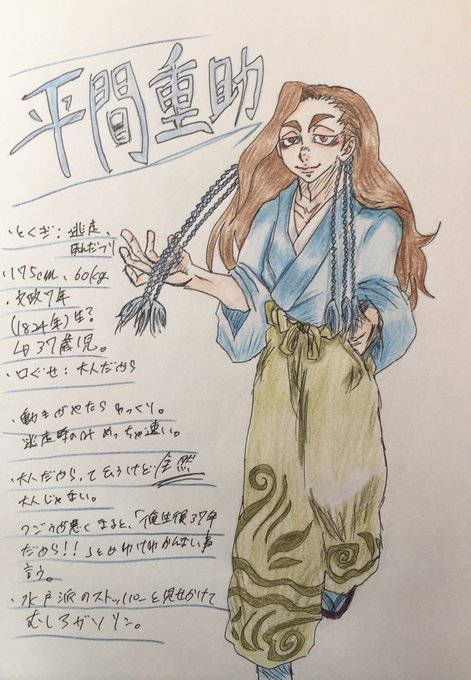 平間重助
・とくぎ:逃走、
死んだフリ
・175cm、60kg
・文政7年
(1824年)生?
山37歳児。
・口ぐせ:大人だから
・動きがやたらゆっくり。
逃走時のみめっちゃ速い。
・大人だから、って言うけど全然
大人じゃない。
つごうが悪くなると、「俺生後37年
だから!!」とかわけわかんない事
言う。
・水戸派のストッパーと見せかけて
むしろガソリン。